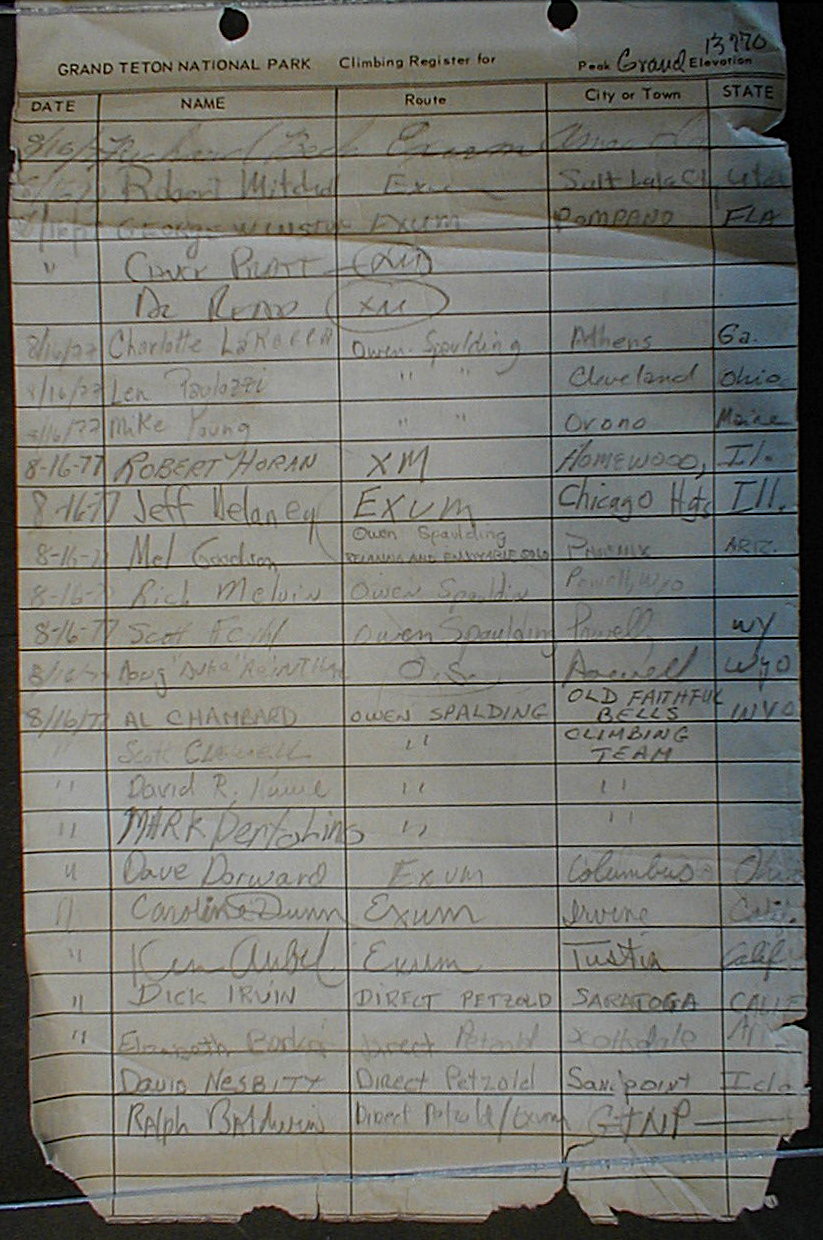 13770
GRAND TETON NATIONAL PARK Climbing Register for Peak Grand Elevation
DATE NAME Route City or Town STATE
8/16/
Robert Exum Salt Lake Utah
GEORGE WINSTON EXUM POMPANO FLA
"
XM
8/16/77 Charlotte Owen Spaulding Athens Ga.
8/16/77 Len " " Cleveland Ohio
8/16/77 Mike Young " " Orono Maine
8-16-77 ROBERT HORAN XM HOMEWOOD, Il.
8-16-77 Jeff Delaney EXUM Chicago Hgts Ill.
8-16-77 Mel Owen Spaulding PHOENIX ARIZ.
AND ENJOYABLE SOLO
8-16-77 Rich Melvin Owen Spauldin Powell, Wyo
8-16-77 Scott Owen Spaulding Powell WY
8/16/77 Doug O.S. WYO
8/16/77 AL CHAMBARD OWEN SPALDING OLD FAITHFUL WYO
BELLS
" Scott " CLIMBING
TEAM
" David R. " "
" MARK " "
" Dave Dorward Exum Columbus Ohio
" Caroline Dunn Exum Irvine Calif.
" Ken Exum Tustin Calif
" DICK IRVIN DIRECT PETZOLD SARATOGA CALIF
" Elizabeth Direct Petzold Scottsdale
DAVID NESBITT Direct Petzold Sandpoint Ida
RALPH BALDWIN Direct Petzold/Exum GTNP